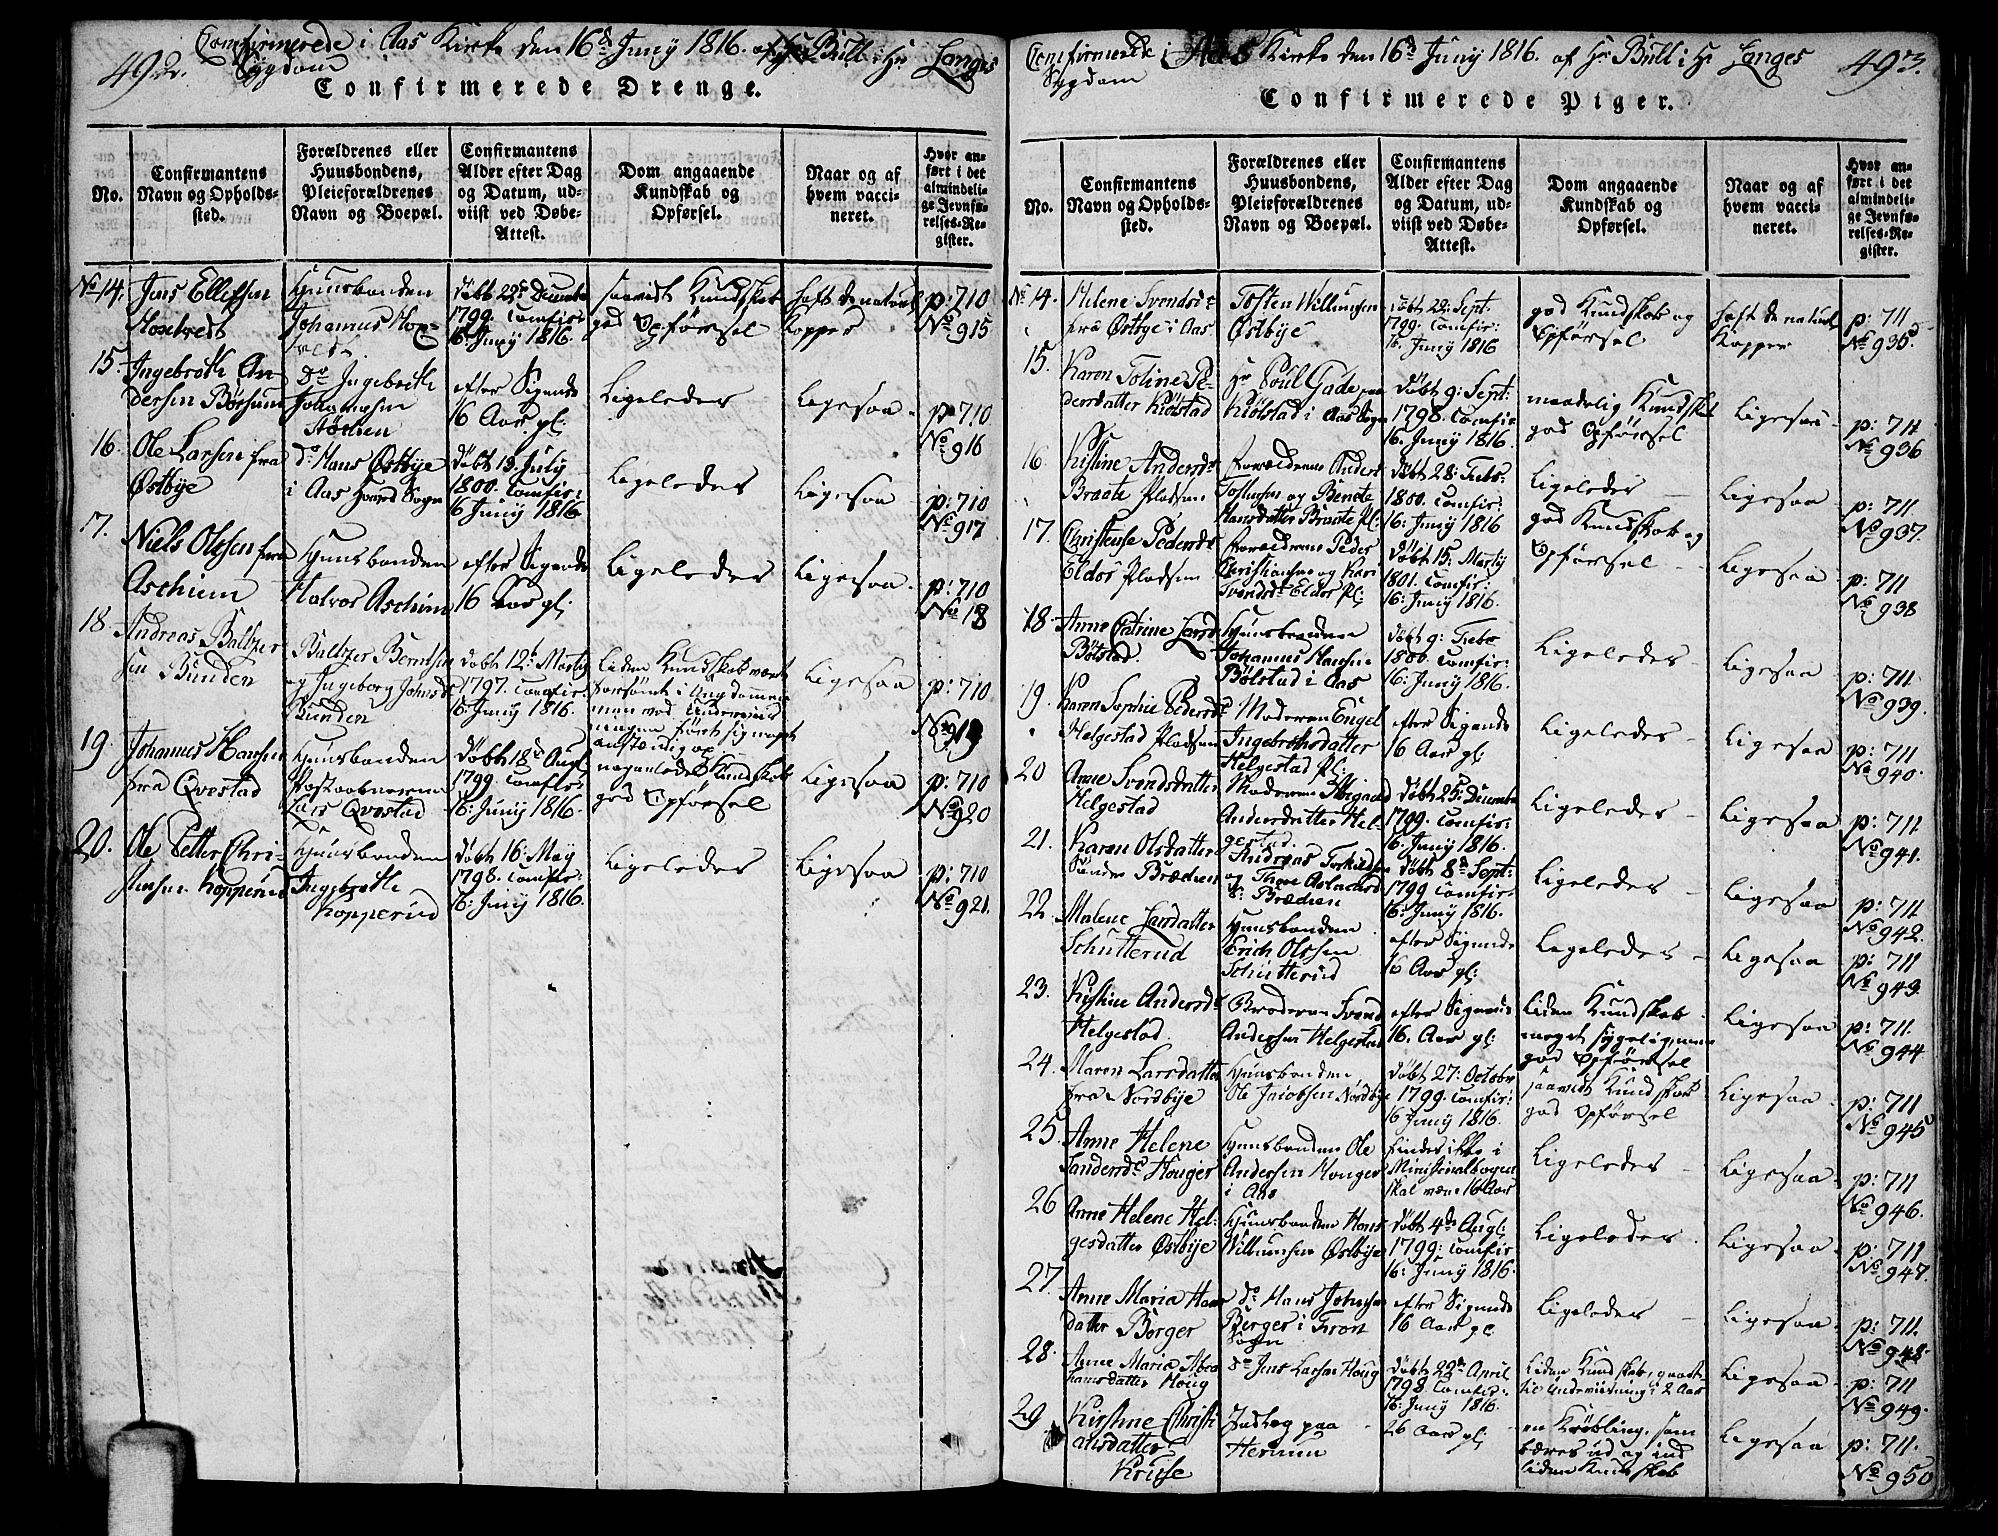 492.
Confirmerede i Aas Kirke den 16de Junÿ 1816. af Hr Bull i Hr Langes
Sygdom
Confirmerede Drenge.
No.
Confirmantens Navn og Opholdssted.
Forældrenes eller Huusbondens, Pleieforældrenes Navn og Boepæl.
Confirmantens Alder efter Dag og Datum, udviist ved Døbe-Attest.
Dom angaaende Kundskab og Opførsel.
Naar og af hvem vaccineret.
Hvor anført i det almindelige Jevnførelses-Register.
No 14.
Jens Ellefsen
Huusbonden
Johannes
døbt 22de Decembr
1799. Comfir:
16: Junÿ 1816.
saavidt Kundskab
god Opførsel
haft de naturl
Kopper
p: 710
No 915
15.
Ingebreth An-
dersen
Do Ingebreth
Johannesen
efter Sigende
16 Aar gl:
Ligeledes
Ligesaa
p: 710
No 916
16.
Ole Larsen fra
Østbÿe
do Hans Østbÿe
i Aas hoved Sogn
døbt 13. Julÿ
1800. Comfir:
16 Junÿ 1816
Ligeledes
Ligesaa
p: 710
No 917
17.
Niels Olesen fra
Aschiem
Huusbonden
Halvor Aschim
efter Sigende
16 Aar gl:
Ligeledes
Ligesaa
p: 710
No 18
18.
Andreas Baltzer
sen Bunden
Baltzer Berntsen
og Ingeborg Johnsdr
Bunden
døbt 12te Martÿ
1797. Comfir:
16: Junÿ 1816.
liden Kundskab været
forsømt i Ungdommen
men ved Underviis
ningen ført sig meget
anstændig op
Ligesaa
p: 710
No 919
19.
Johannes Hansen
fra Qvestad
Huusbonden
Postaabneren
Lars Qvestad
døbt 18de Augl
1799. Comfir:
16: Junÿ 1816.
nogenledes Kundskab
god Opførsel
Ligesaa
p: 710
No 920
20.
Ole Petter Chri-
stensen Kopperud
Huusbonden
Ingebreth
Kopperud
døbt 16: Maÿ
1798. Comfir:
16: Junÿ 1816.
Ligeledes
Ligesaa
p: 710
No 921.
Confirmerede i Aas Kirke den 16de Junÿ 1816. af Hr Bull i Hr Langes
Sygdom
493.
Confirmerede Piger.
No.
Confirmantens Navn og Opholdssted.
Forældrenes eller Huusbondens, Pleieforældrenes Navn og Boepæl.
Confirmantens Alder efter Dag og Datum, udviist ved Døbe-Attest.
Dom angaaende Kundskab og Opførsel.
Naar og af hvem vaccineret.
Hvor anført i det almindelige Jevnførelses-Register.
No 14.
Helene Svendsdr
fra Østbÿe i Aas
Tosten Willumsen
Østbÿe
døbt 22: Sept.
1799. Comfir:
16. Junÿ 1816
god Kundskab og
Opførsel
haft de naturl
Kopper
p: 711
No 935.
15.
Karen Toline Pe-
dersdatter Kiølstad
Hr Poul Gade paa
Kiølstad i Aas Sogn
døbt 9: Sept:
1798. Comfir:
16. Junÿ 1816.
maadelig Kundskab
god Opførsel
Ligesaa
p: 711
No 936
16
Kistine Andersdr
Braate Pladsen
Forældrene Anders
Tostensen og Bendte
Hansdatter Braate Pl:
døbt 28: Febr
1800. Comfir:
16: Junÿ 1816
Ligeledes
Ligesaa
p: 711
No 937.
17.
Christense Pedersdr
Eldor Pladsen
Forældrene Peder
Christiansen og Kari
Svendsdr Eldor Pl:
døbt 15. Martÿ
1801. Comfir:
16: Junÿ 1816.
god Kundskab og
Opførsel
Ligesaa
p: 711
No 938
18.
Anne Catrine Larsdr
Bølstad.
Huusbonden
Johannes Hansen
Bølstad i Aas
døbt 9: Febr
1800. Comfir:
16: Junÿ 1816.
Ligeledes
Ligesaa
p: 711
No 939.
19.
Karen Sophie Pedersdr
Helgestad Pladsen
Moderen Engel
Ingebrethsdatter
Helgestad Pl:
efter Sigende
16 Aar gl:
Ligeledes
Ligesaa
p: 711
No 940.
20
Anne Svendsdatter
Helgestad
Moderen
Andersdatter Hel-
gestad.
døbt 25: Decembr
1799. Comfir:
16: Junÿ 1816.
Ligeledes
Ligesaa
p: 711
No 941.
21.
Karen Olsdatter
Sunder Brædien
Andreas
og
Brædien
døbt 8de Sept:
1799 Comfir:
16: Junÿ 1816.
Ligeledes
Ligesaa
p: 711
No 942.
22.
Malene Larsdatter
Schutterud
Huusbonden
Erich Olssen
Schutterud
efter Sigende
16 Aar gl:
Ligeledes
Ligesaa
p: 711
No 943.
23.
Kistine Andersdr
Helgestad
Broderen Svend
Andersen Helgestad
efter Sigende
16. Aar gl:
liden Kundskab
meget sygelig, men
god Opførsel
Ligesaa
p: 711.
No 944
24.
Maren Larsdatter
fra Nordbÿe
Huusbonden
Ole Jacobsen Nordbÿe
døbt 27: Octobr
1799. Comfir:
16 Junÿ 1816.
saavidt Kundskab
god Opførsel
Ligesaa
p: 711
No 945
25.
Anne Helene
Sandersdr Houger
Huusbonden Ole
Andersen Houger
i Aas
findes ikke i
Ministerialbogen
skal være 16 Aar
Ligeledes
Ligesaa
p: 711
No 946.
26
Anne Helene Hel-
gesdatter Østbÿe
Huusbonden Hans
Willumsen Østbÿe
døbt 4de Augl:
1799: Comfir:
16: Junÿ 1816.
Ligeledes
Ligesaa
p: 711
No 947.
27.
Anne Maria Hans
datter Berger
do Hans Johnsen
Berger i Fron
Sogn
efter Sigende
16 Aar gl
Ligeledes
Ligesaa
p: 711.
No 948.
28.
Anne Maria Abra
hamsdatter Houg
do Jens Larsen Houg
døbt 22de April
1798 Comfir:
16: Junÿ 1816.
liden Kundskab,
Underviisning i 2 Aar
Ligesaa
p: 711
No 949.
29
Kirstine Christi
ansdatter
Kruse
Indlæg paa
Herum
26 Aar gl:
en Krøbling, som
bæres ud og ind
liden Kundskab
Ligesaa
p: 711.
No 950